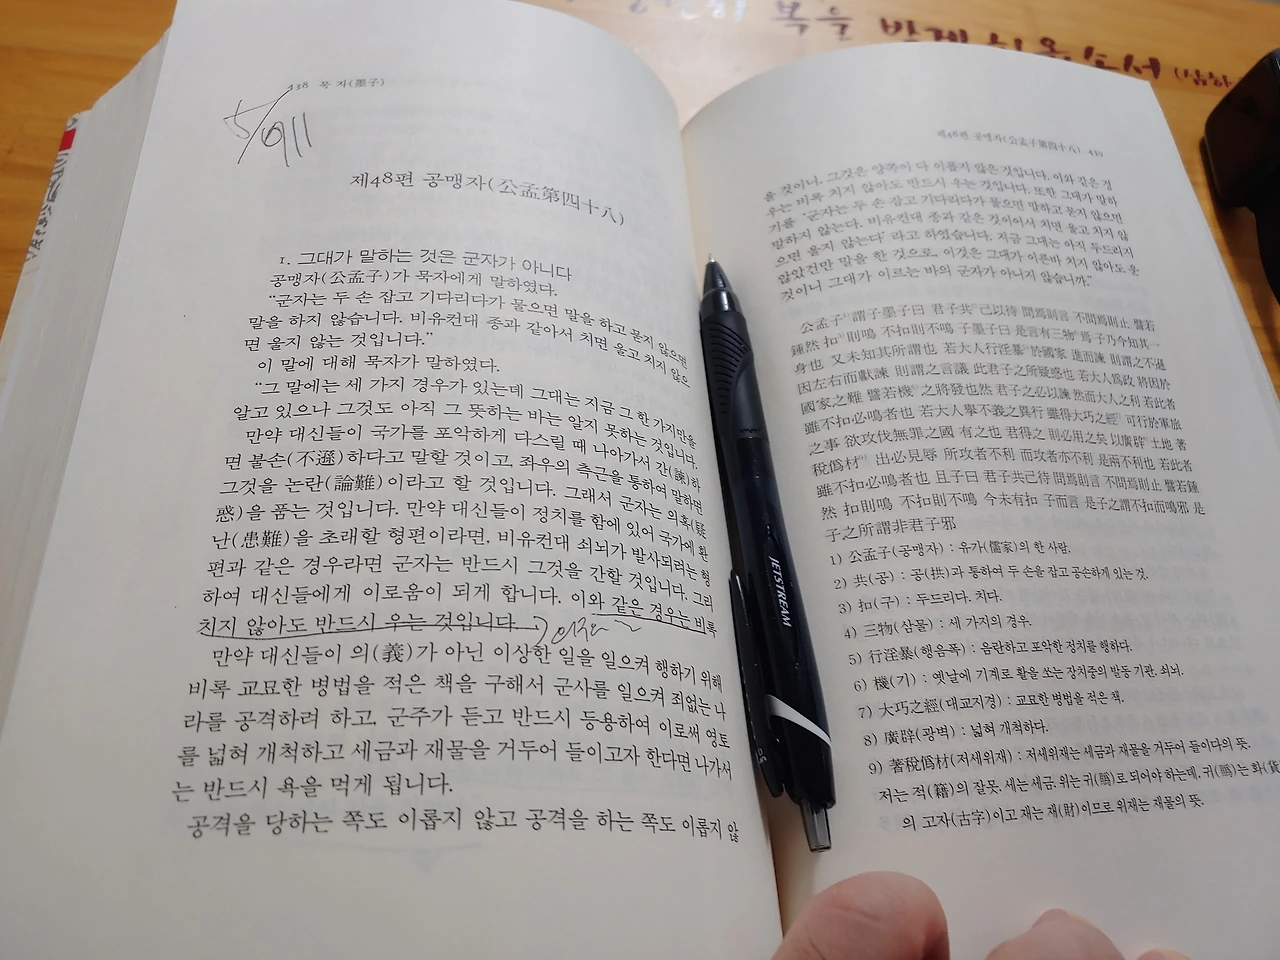 복을
438 묵 자(墨子)
제48편 공맹자(公孟第四十八)
1. 그대가 말하는 것은 군자가 아니다
공맹자(公孟子)가 묵자에게 말하였다.
“군자는 두 손 잡고 기다리다가 물으면 말을 하고 묻지 않으면
말을 하지 않습니다. 비유컨대 종과 같아서 치면 울고 치지 않으
면 울지 않는 것입니다.”
이 말에 대해 묵자가 말하였다.
“그 말에는 세 가지 경우가 있는데 그대는 지금 그 한 가지만을
알고 있으나 그것도 아직 그 뜻하는 바는 알지 못하는 것입니다.
만약 대신들이 국가를 포악하게 다스릴 때 나아가서 간(諫)하
면 불손(不遜)하다고 말할 것이고, 좌우의 측근을 통하여 말하면
그것을 논란(論難)이라고 할 것입니다. 그래서 군자는 의혹(疑
惑)을 품는 것입니다. 만약 대신들이 정치를 함에 있어 국가에 환
난(患難)을 초래할 형편이라면, 비유컨대 쇠뇌가 발사되려는 형
편과 같은 경우라면 군자는 반드시 그것을 간할 것입니다. 그리
하여 대신들에게 이로움이 되게 합니다. 이와 같은 경우는 비록
치지 않아도 반드시 우는 것입니다.
만약 대신들이 의(義)가 아닌 이상한 일을 일으켜 행하기 위해
비록 교묘한 병법을 적은 책을 구해서 군사를 일으켜 죄없는 나
라를 공격하려 하고, 군주가 듣고 반드시 등용하여 이로써 영토
를 넓혀 개척하고 세금과 재물을 거두어 들이고자 한다면 나가서
는 반드시 욕을 먹게 됩니다.
공격을 당하는 쪽도 이롭지 않고 공격을 하는 쪽도 이롭지 않
제48편 공맹자(公孟子第四十八) 439
을 것이니, 그것은 양쪽이 다 이롭지 않은 것입니다. 이와 같은 경
우는 비록 치지 않아도 반드시 우는 것입니다. 또한 그대가 말하
기를 ‘군자는 두 손 잡고 기다리다가 물으면 말하고 묻지 않으면
말하지 않는다. 비유컨대 종과 같은 것이어서 치면 울고 치지 않
으면 울지 않는다’ 라고 하였습니다. 지금 그대는 아직 두드리지
않았건만 말을 한 것으로, 이것은 그대가 이른바 치지 않아도 운
것이니 그대가 이르는 바의 군자가 아니지 않습니까.”
公孟子1)謂子墨子曰 君子共2)己以待 問焉則言 不問焉則止 譬若
鍾然 扣3)則鳴 不扣則不鳴 子墨子曰 是言有三物4)焉 子乃今知其一
身也 又未知其所謂也 若大人行淫暴5)於國家 進而諫 則謂之不遜
因左右而獻諫 則謂之言議 此君子之所疑惑也 若大人爲政 將因於
國家之難 譬若機6)之將發也然 君子之必以諫 然而大人之利 若此者
雖不扣必鳴者也 若大人擧不義之異行 雖得大巧之經7) 可行於軍旅
之事 欲攻伐無罪之國 有之也 君得之 則必用之矣 以廣辟8)土地 著
稅僞材9) 出必見辱 所攻者不利 而攻者亦不利 是兩不利也 若此者
雖不扣必鳴者也 且子曰 君子共己待 問焉則言 不問焉則止 譬若鍾
然 扣則鳴 不扣則不鳴 今未有扣 子而言 是子之謂不扣而鳴邪 是
子之所謂非君子邪
1) 公孟子(공맹자) : 유가(儒家)의 한 사람.
2) 共(공) : 공(拱)과 통하여 두 손을 잡고 공손하게 있는 것.
3) 扣(구) : 두드리다. 치다.
4) 三物(삼물) : 세 가지의 경우.
5) 行淫暴(행음폭) : 음란하고 포악한 정치를 행하다.
6) 機(기) : 옛날에 기계로 활을 쏘는 장치중의 발동 기관. 쇠뇌.
7) 大巧之經(대교지경) : 교묘한 병법을 적은 책.
8) 廣辟(광벽) : 넓혀 개척하다.
9) 著稅僞材(저세위재) : 저세위재는 세금과 재물을 거두어 들이다의 뜻.
저는 적(籍)의 잘못. 세는 세금. 위는 귀(賵)로 되어야 하는데, 귀(賵)는 화(貨
의 고자(古字)이고 재는 재(財)이므로 위재는 재물의 뜻.
JETSTREAM